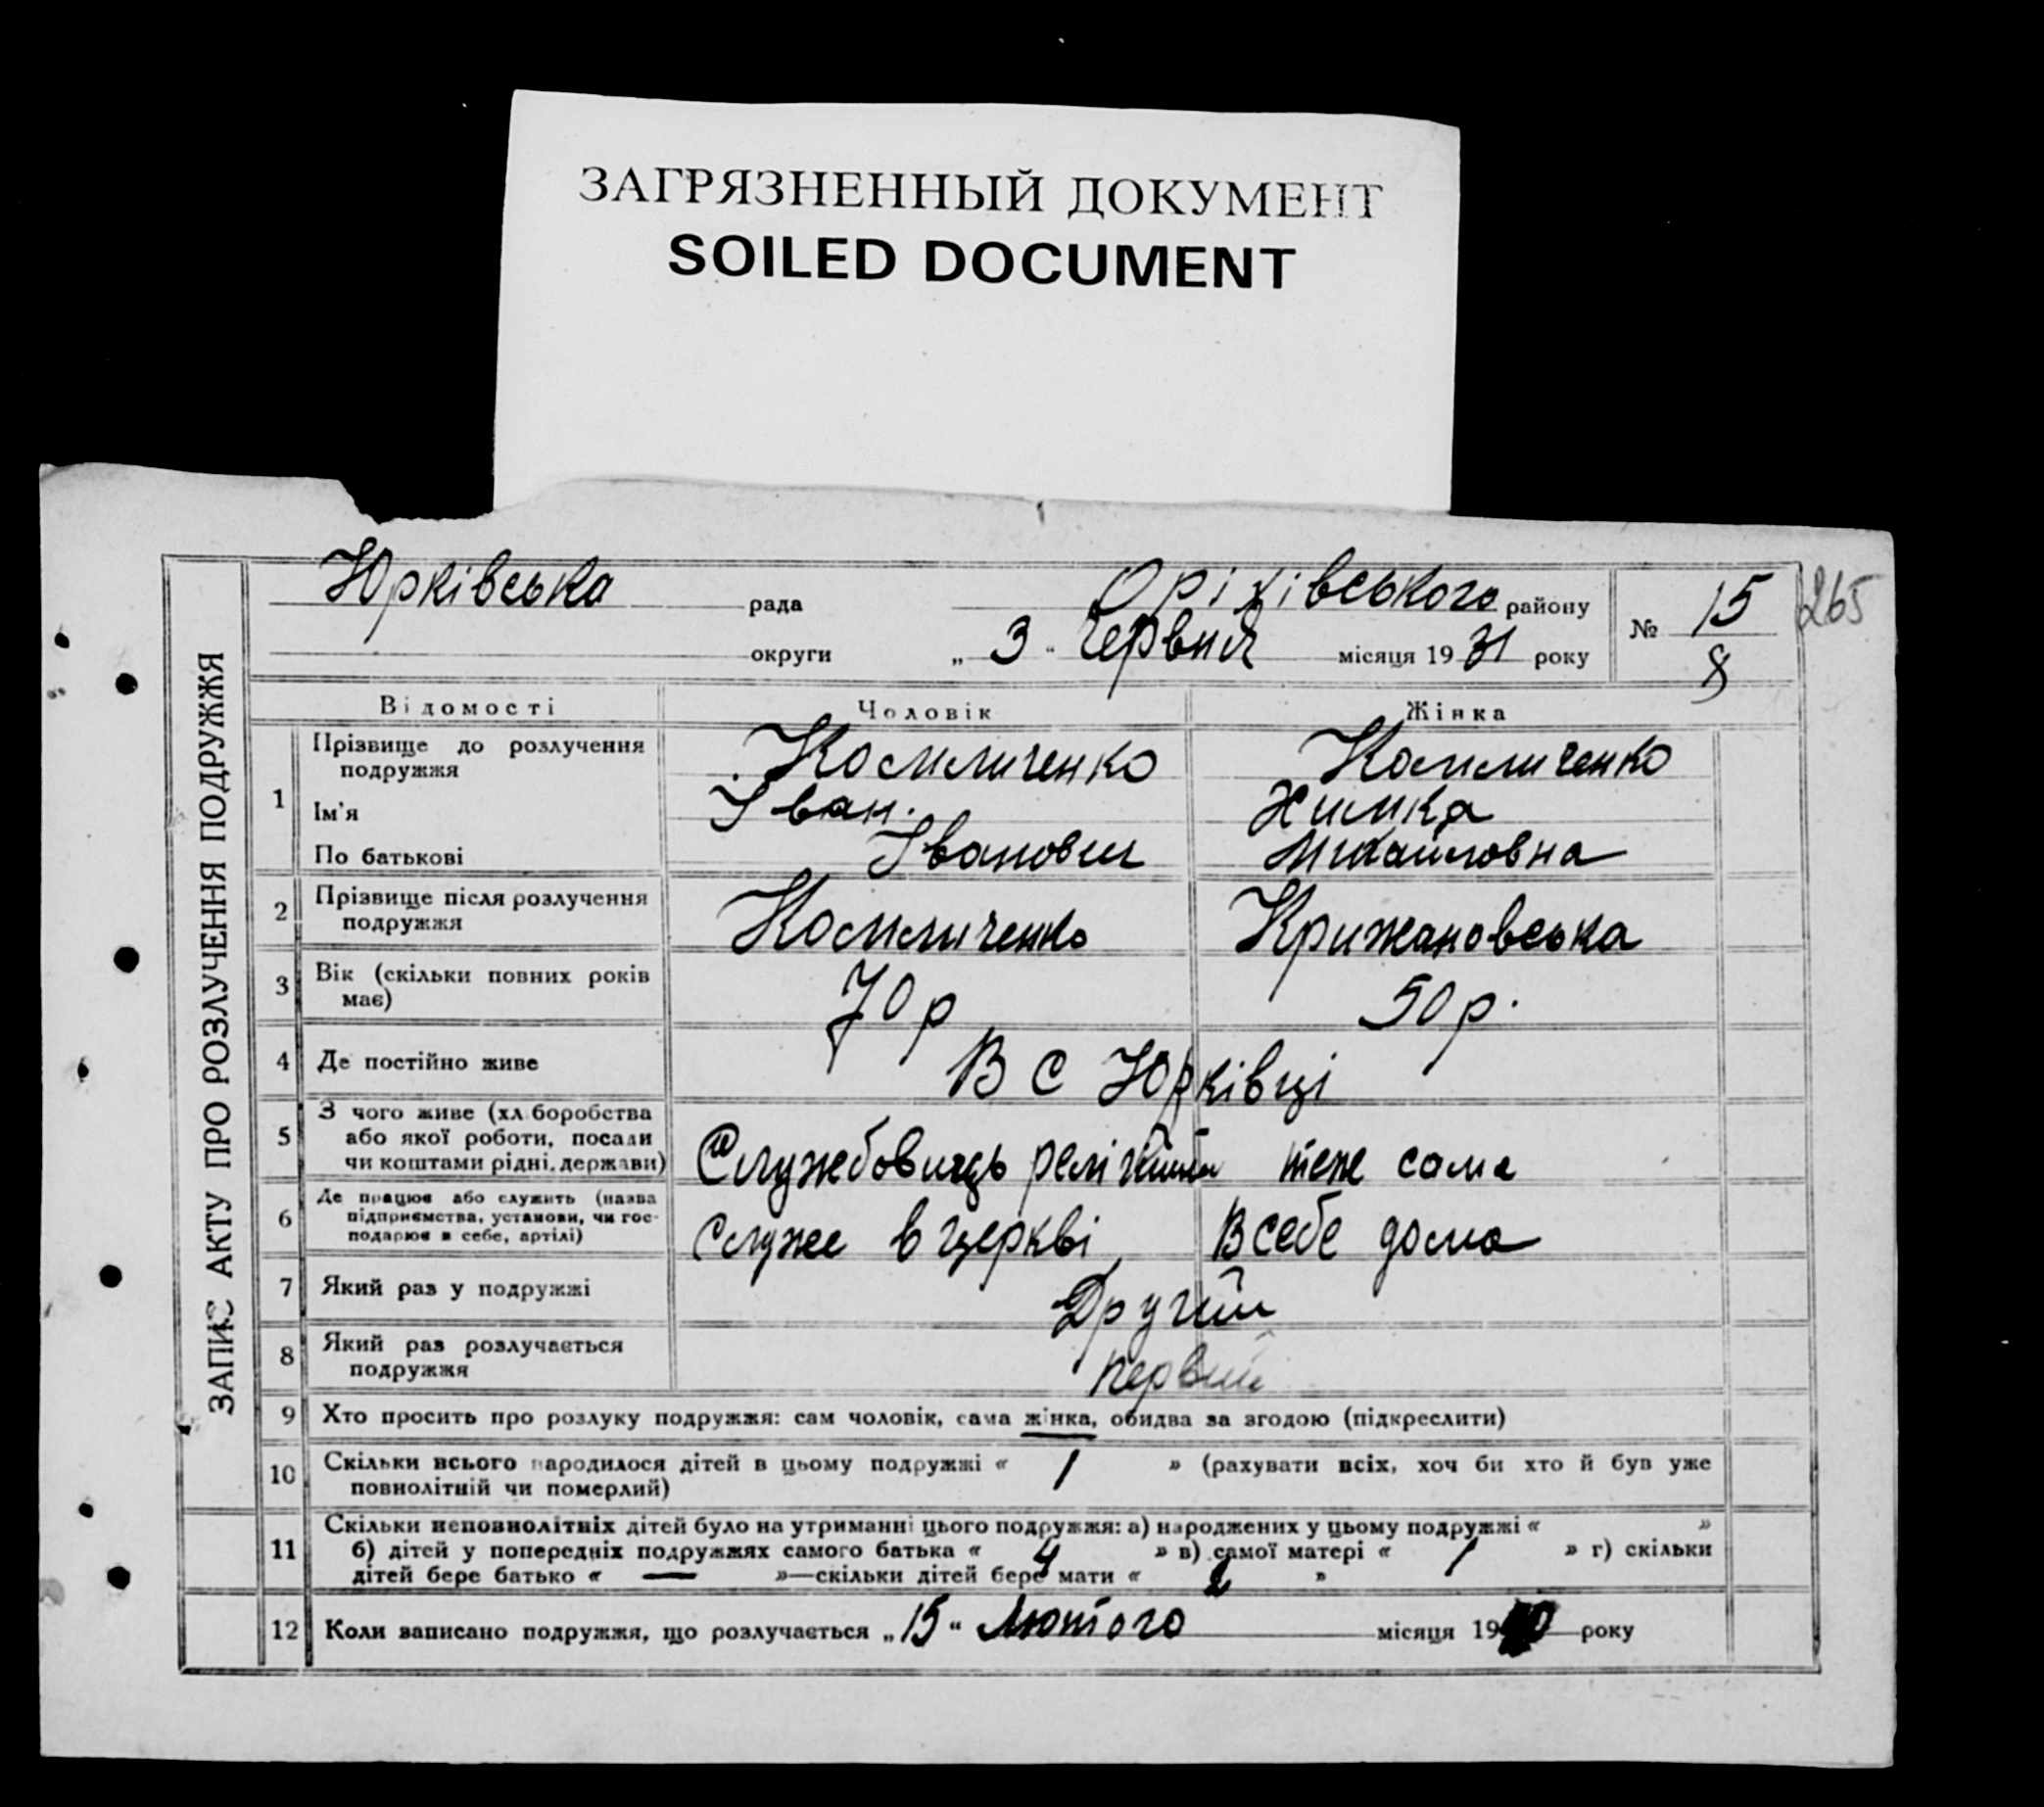 ЗАГРЯЗНЕННЫЙ ДОКУМЕНТ
SOILED DOCUMENT
Юрківська рада Оріхівського району № 15 265
округи „ 3 " Червня місяця 19 31 року 8
ЗАПИС АКТУ ПРО РОЗЛУЧЕННЯ ПОДРУЖЖЯ
Відомості Чоловік Жінка
1 Прізвище до розлучення
подружжя
Ім'я Іван Химка
По батькові Іванович Михайловна
2 Прізвище після розлучення
подружжя Крижановська
3 Вік (скільки повних років
має) 70 р 50 р.
4 Де постійно живе В С Юрківці
5 З чого живе (хл.боробства
або якої роботи, посади
чи коштами рідні, держави) Службовиць теж саме
6 Де працює або служить (назва
підприємства, установи, чи гос-
подарює в себе, артілі) служе в церкві В себе дома
7 Який раз у подружжі Другий
8 Який раз розлучається
подружжя первий
9 Хто просить про розлуку подружжя: сам чоловік, сама жінка, обидва за згодою (підкреслити)
10 Скільки всього народилося дітей в цьому подружжі « 1 » (рахувати всіх, хоч би хто й був уже
повнолітній чи померлий)
11 Скільки неповнолітніх дітей було на утриманні цього подружжя: а) народжених у цьому подружжі « »
б) дітей у попередніх подружжях самого батька « 4 » в) самої матері « 1 » г) скільки
дітей бере батько « — »—скільки дітей бере мати « »
12 Коли записано подружжя, що розлучається „ 15 " Лютого місяця 19 року